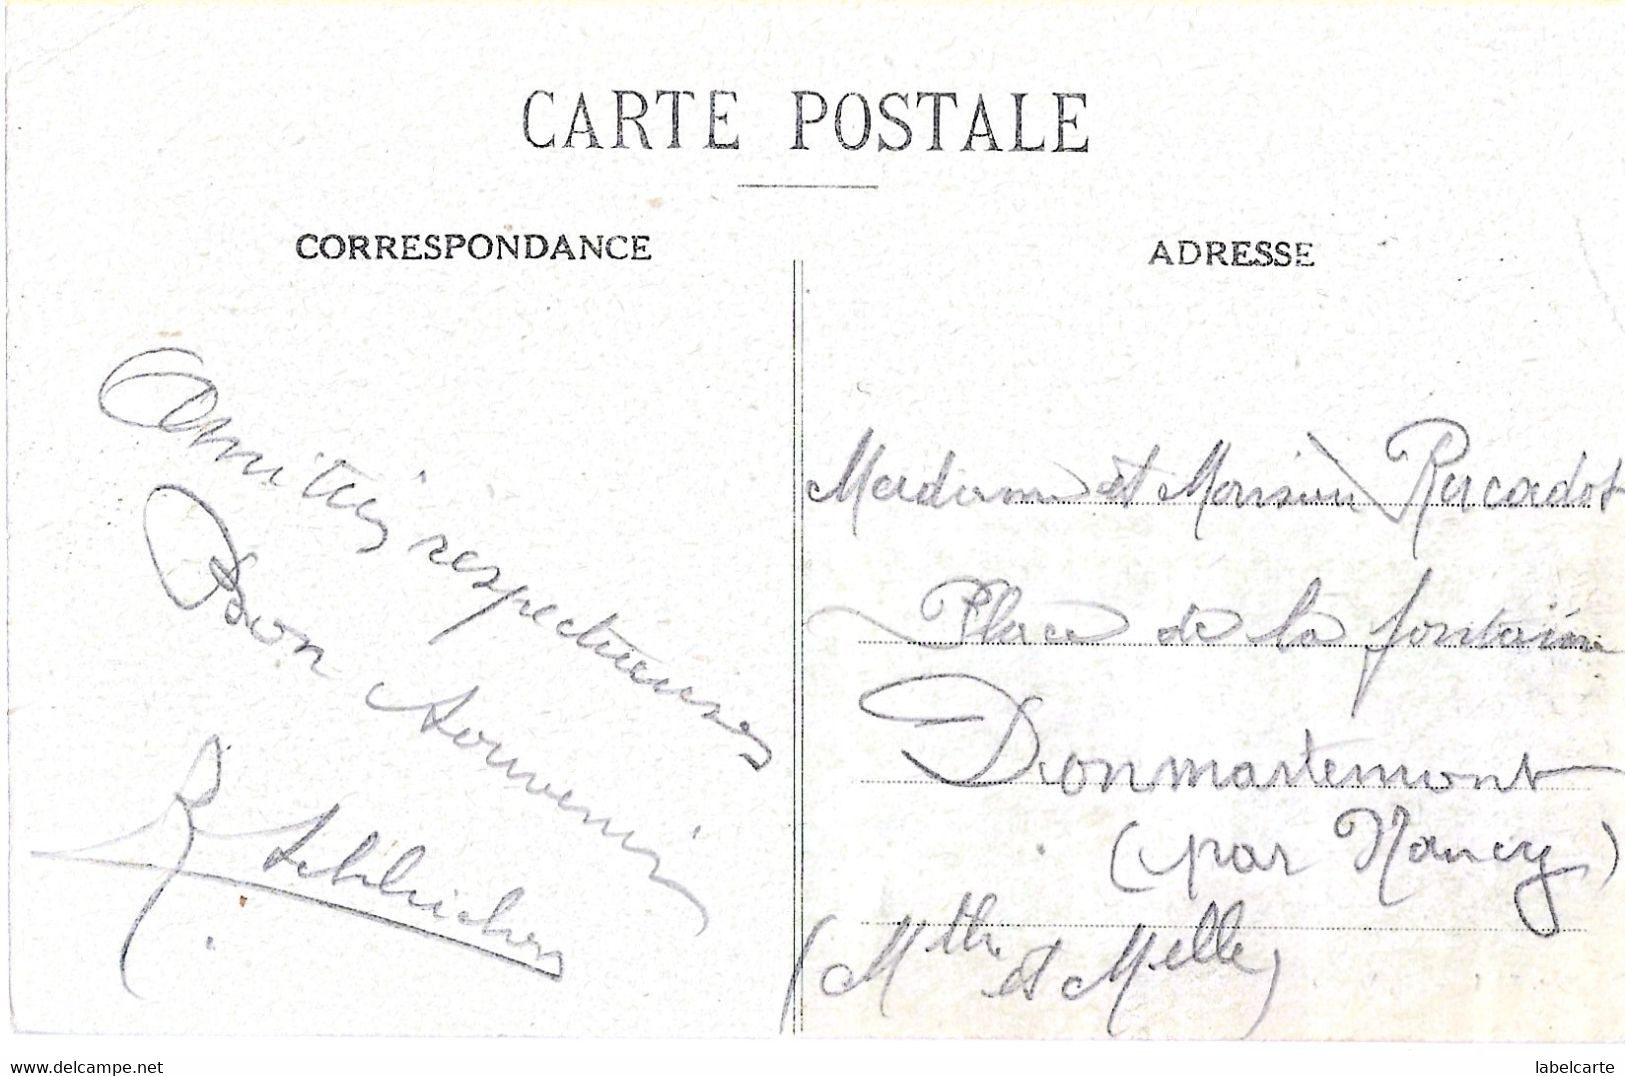 CARTE POSTALE
CORRESPONDANCE
Amitiés respectueuses
Bon Souvenir
R. Schlicher
ADRESSE
Madame et Monsieur
Place de la fontaine
Dommartemont
(par Nancy)
(Mth et Melle)
delcampe.net
labelcarte